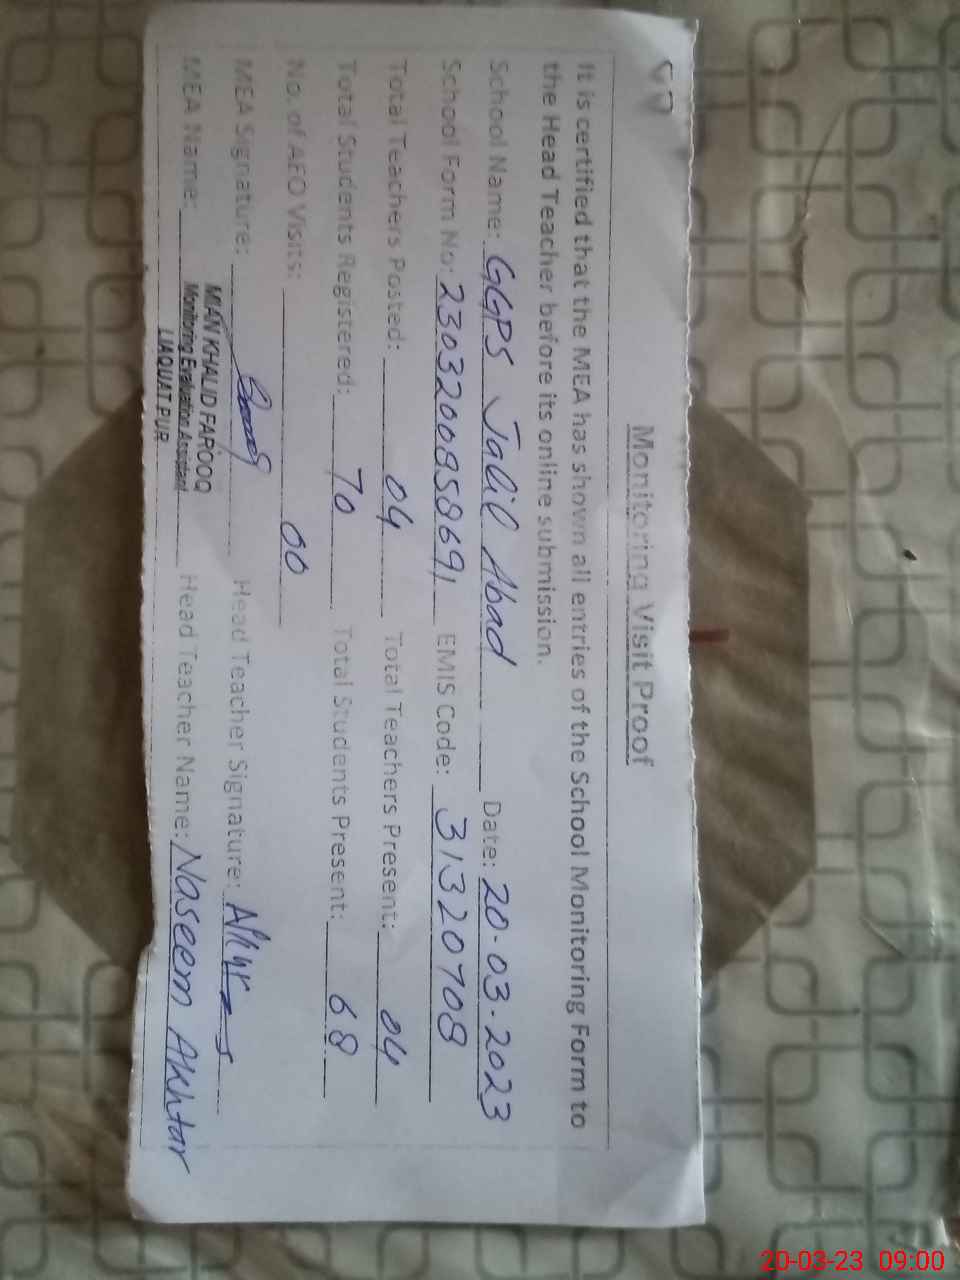 Monitoring Visit Proof
It is certified that the MEA has shown all entries of the School Monitoring Form to
the Head Teacher before its online submission.
School Name: GGPS Jalil Abad Date: 20-03-2023
School Form No: 230320085869, EMIS Code: 31320708
Total Teachers Posted: 04 Total Teachers Present: 04
Total Students Registered: 70 Total Students Present: 68
No. of AEO Visits: 00
MEA Signature: Head Teacher Signature:
MEA Name: MIAN KHALID FAROOQ Head Teacher Name: Naseem Akhtar
Monitoring Evaluation Assistant
LIAQUAT PUR
20-03-23 09:00